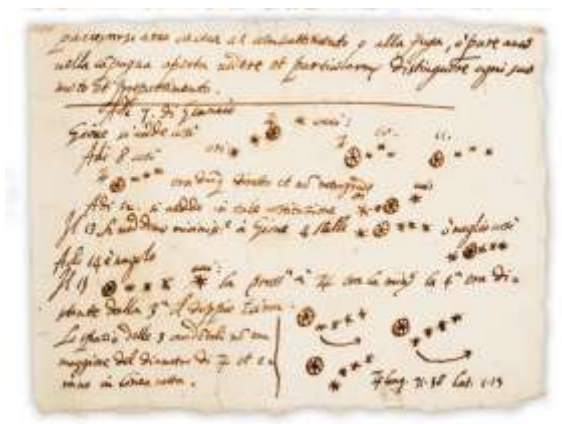 al combattimento o alla fuga, o pure anco
nella campagna aperta vedere et particolarm. distinguere ogni suo
moto et preparamento.
Adi 7. di Gennaio
Giove si vedde così
Adi 8 così
era dunq. diretto et nō retrogrado
Adi 12. si vedde in tale costituzione
Il 13 si veddono vicinis.e à Giove 4 stelle ò meglio così
Adi 14 è nugolo
Il 15 la pross.a à ♃ era la min.e la 4.a era di=
stante dalla 3.a il doppio
Lo spazio delle 3 occidentali nō era
maggiore del diametro di ♃ et e=
rano in linea retta.
♃ long. 71.38 lat. 1.13